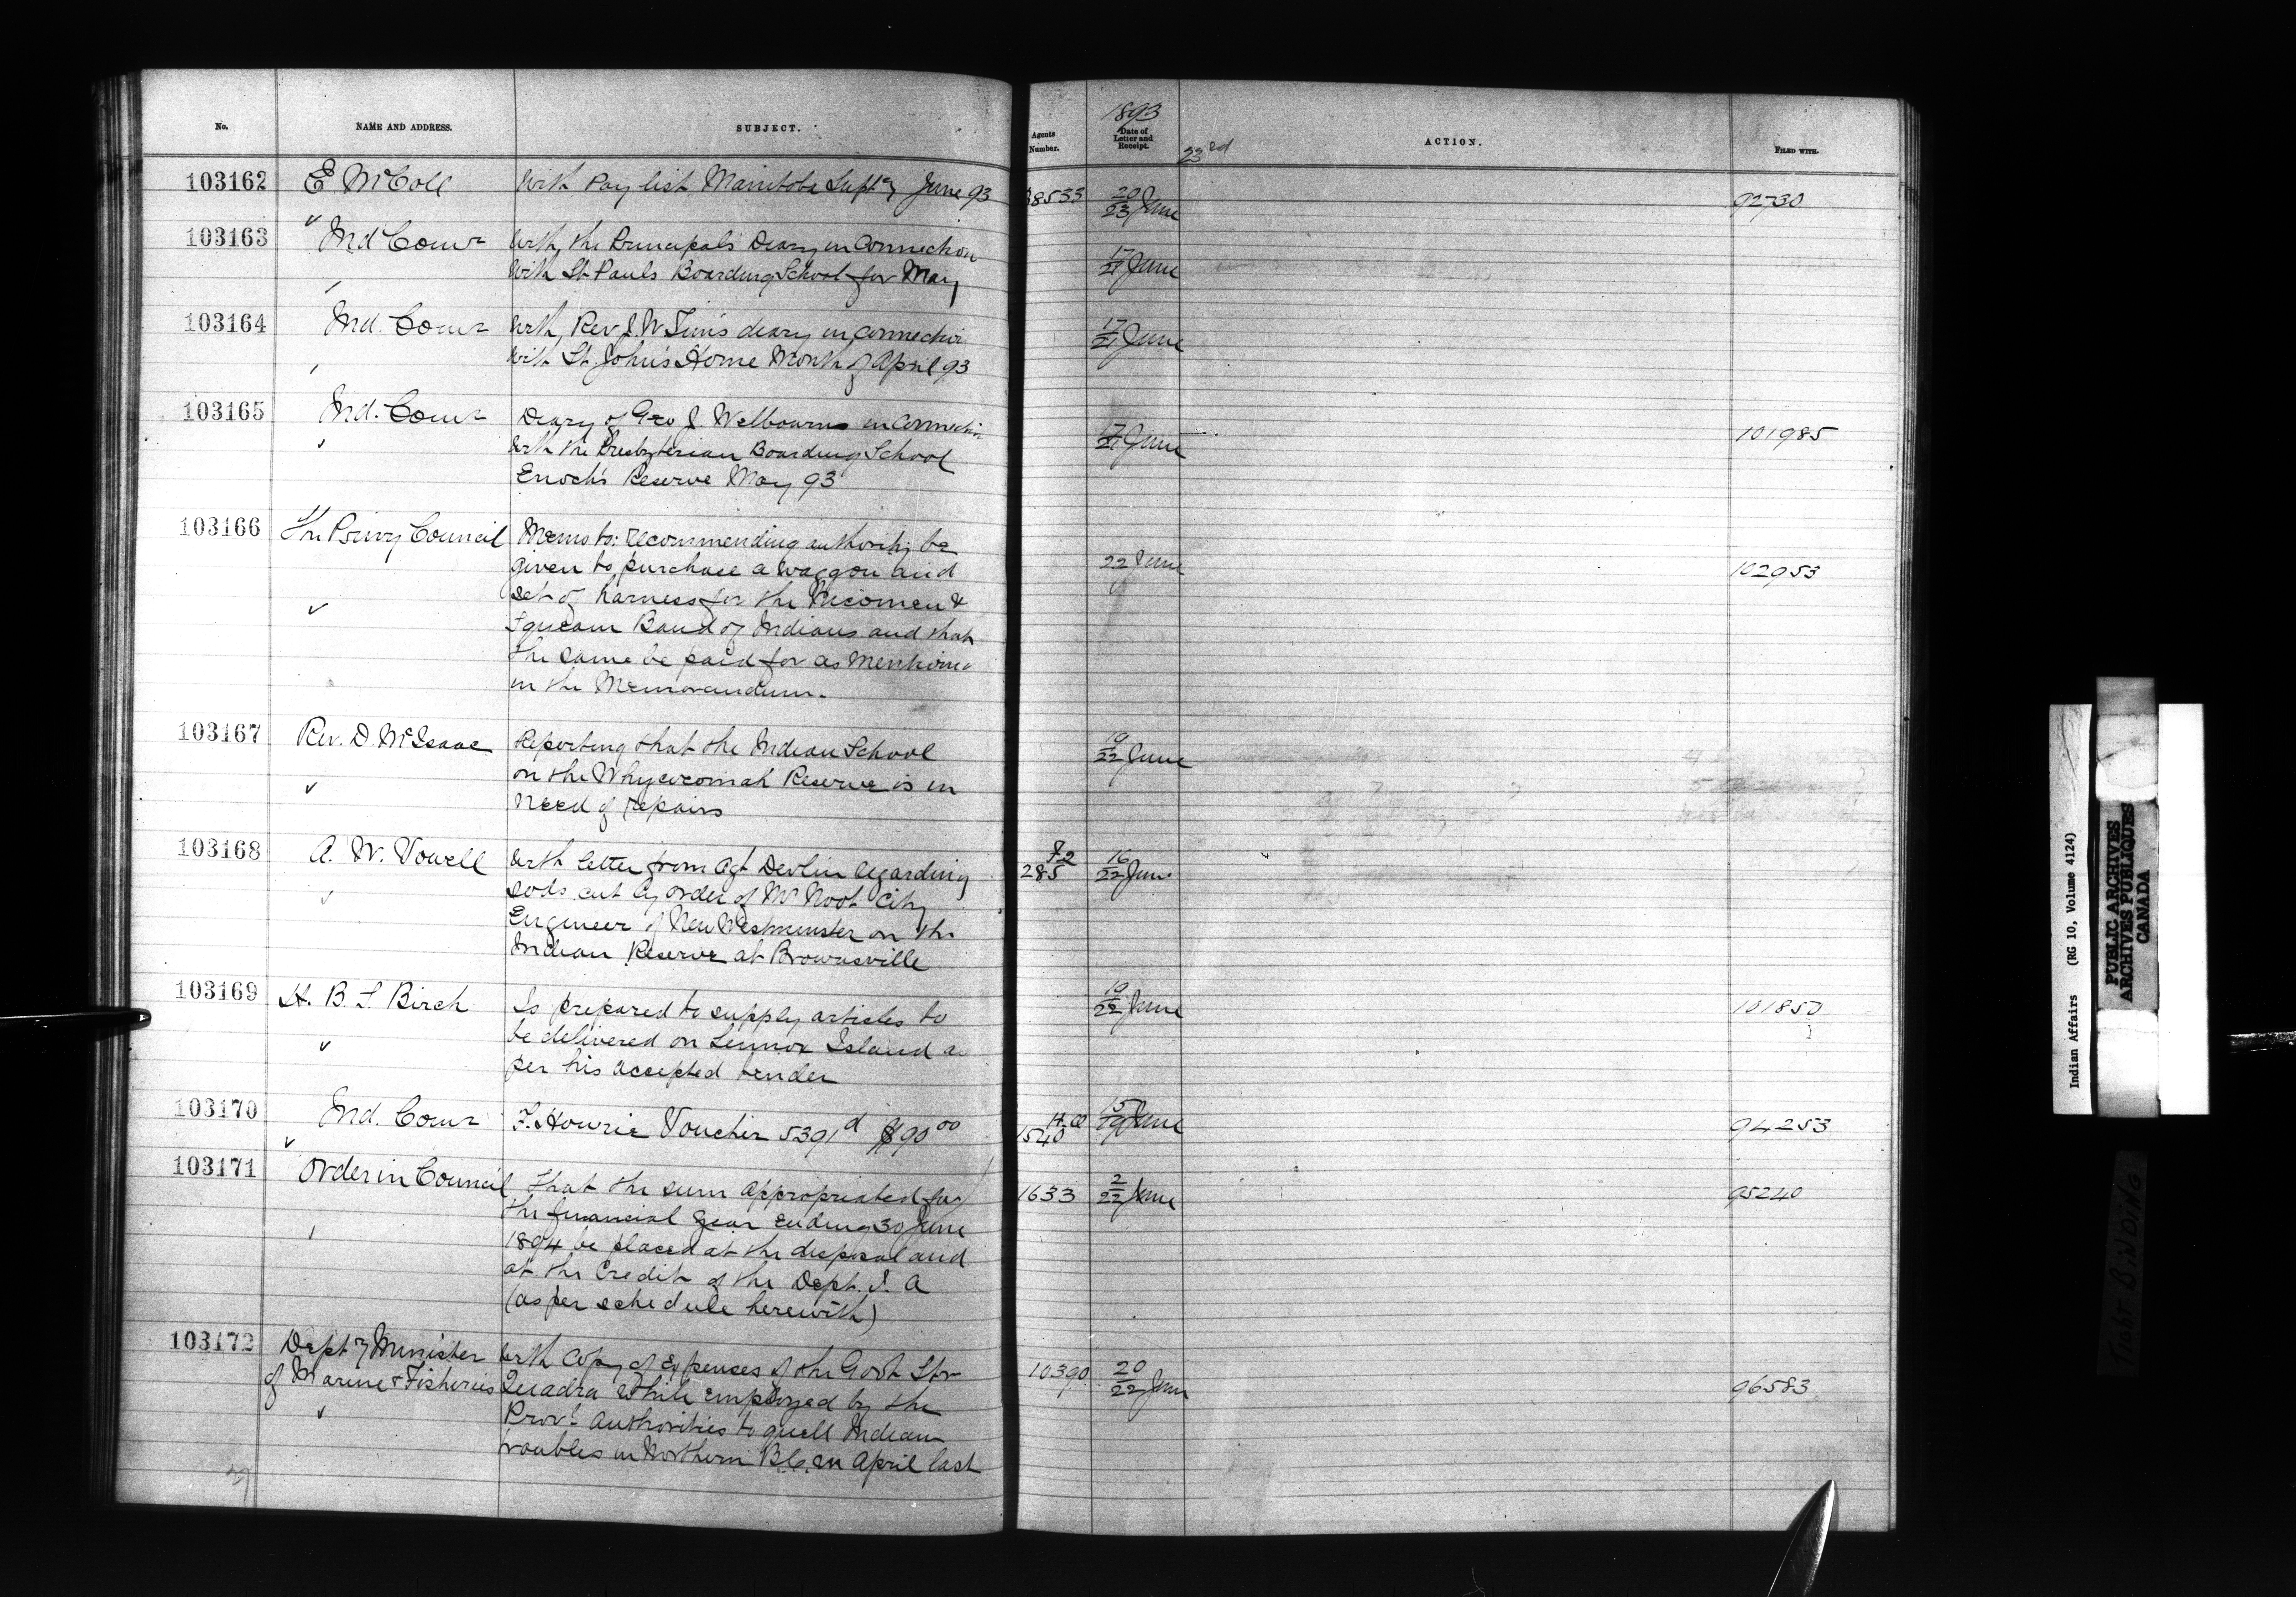 No. NAME AND ADDRESS. SUBJECT. Agents Number. 1893 Date of Letter and Receipt. 23rd ACTION. FILED WITH.
103162 E McColl With Pay list Manitoba Suptcy June 93 38533 20/23 June 92730
103163 Ind Comr With the Principals Diary in connection 17/21 June
With St Pauls Boarding School for May
103164 Ind. Comr With Rev J. W Tims diary in connection 17/21 June
With St. John's Home Month of April 93
103165 Ind. Comr Diary of Geo J. Welbourne in connection 17/21 June 101985
With the Presbyterian Boarding School
Enoch's Reserve May 93
103166 The Privy Council Memo to: recommending authority be 22 June 102953
given to purchase a waggon and
set of harness for the Nicomen &
Squeam Band of Indians and that
the same be paid for as mentioned
in the Memorandum.
103167 Rev. D. McIsaac Reporting that the Indian School 19/22 June
on the Whycocomah Reserve is in
need of repairs
103168 A. W. Vowell With letter from Agt Devlin regarding 285 16/22 June
sods cut by order of Mr Noot City
Engineer of New Westminster on the
Indian Reserve at Brownsville
103169 H. B. L. Birch Is prepared to supply articles to 19/22 June 101850
be delivered on Lennox Island as
per his accepted tender
103170 Ind. Comr F. Hourie Voucher 5391d $90 00 1540 June 94253
103171 Order in Council That the sum appropriated for 1633 2/22 June 95240
the financial year ending 30 June
1894 be placed at the disposal and
at the Credit of the Dept. I. A
(as per schedule herewith)
103172 Depty Minister With Copy of Expenses of the Govt Str 10390 20/22 June 96583
of Marine & Fisheries Quadra while employed by the
Provl authorities to quell Indian
troubles in Northern B.C. in April last
Indian Affairs (RG 10, Volume 4124)
PUBLIC ARCHIVES
ARCHIVES PUBLIQUES
CANADA
TIGHT BINDING